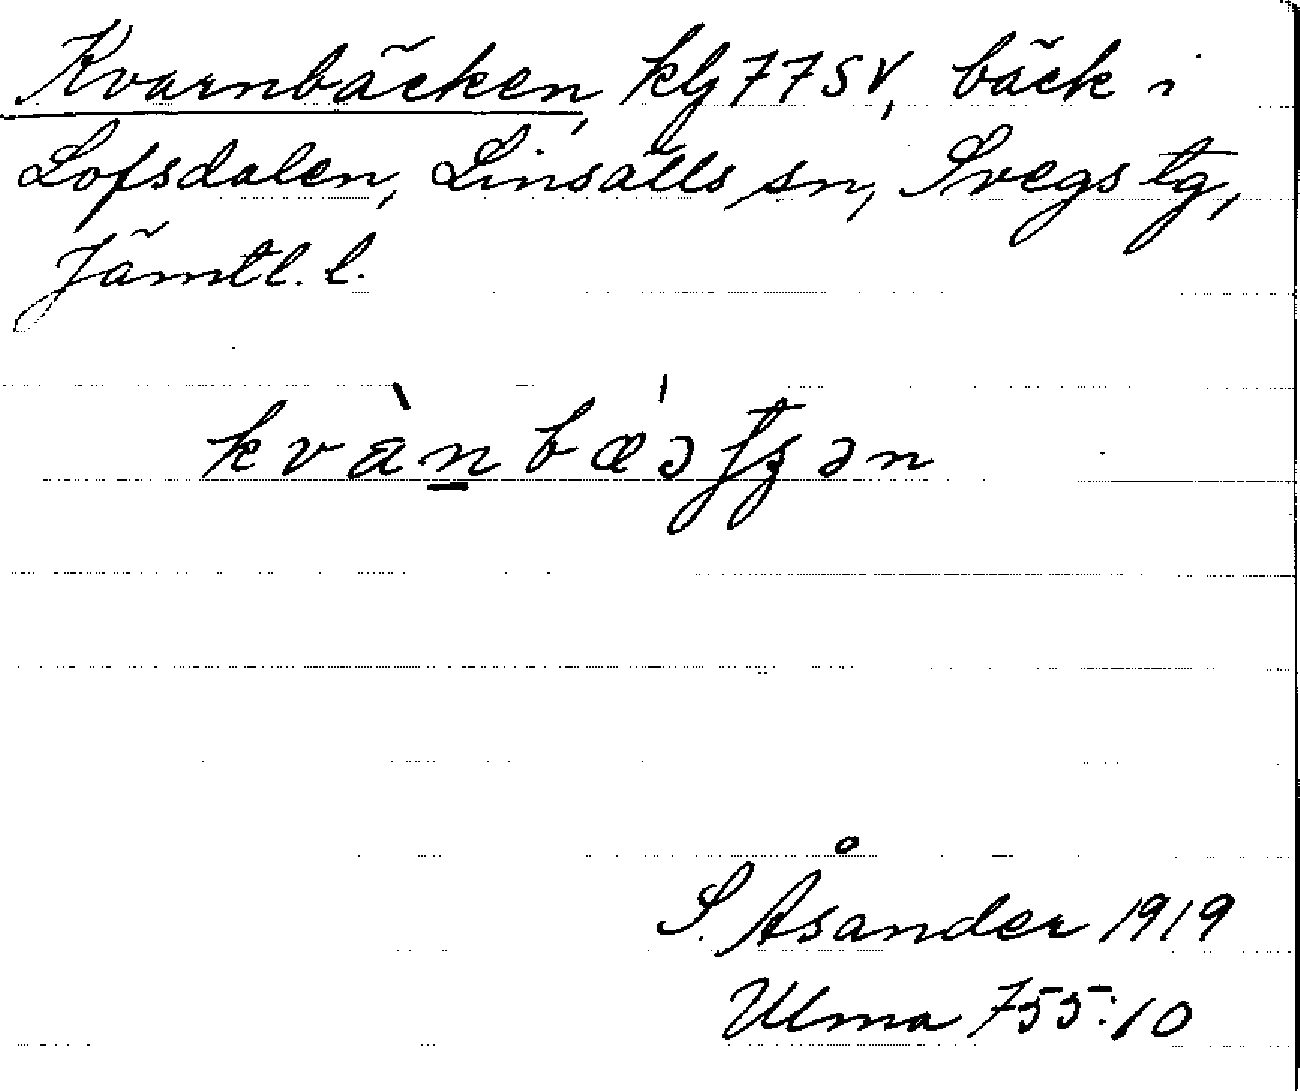 Kvarnbäcken, kbj 77 SV, bäck i
Lofsdalen, Linsälls sn, Svegs tg,
Jämtl. l.
kvànbæ'ɔʃʒən
S. Åsander 1919
Ulma 755:10